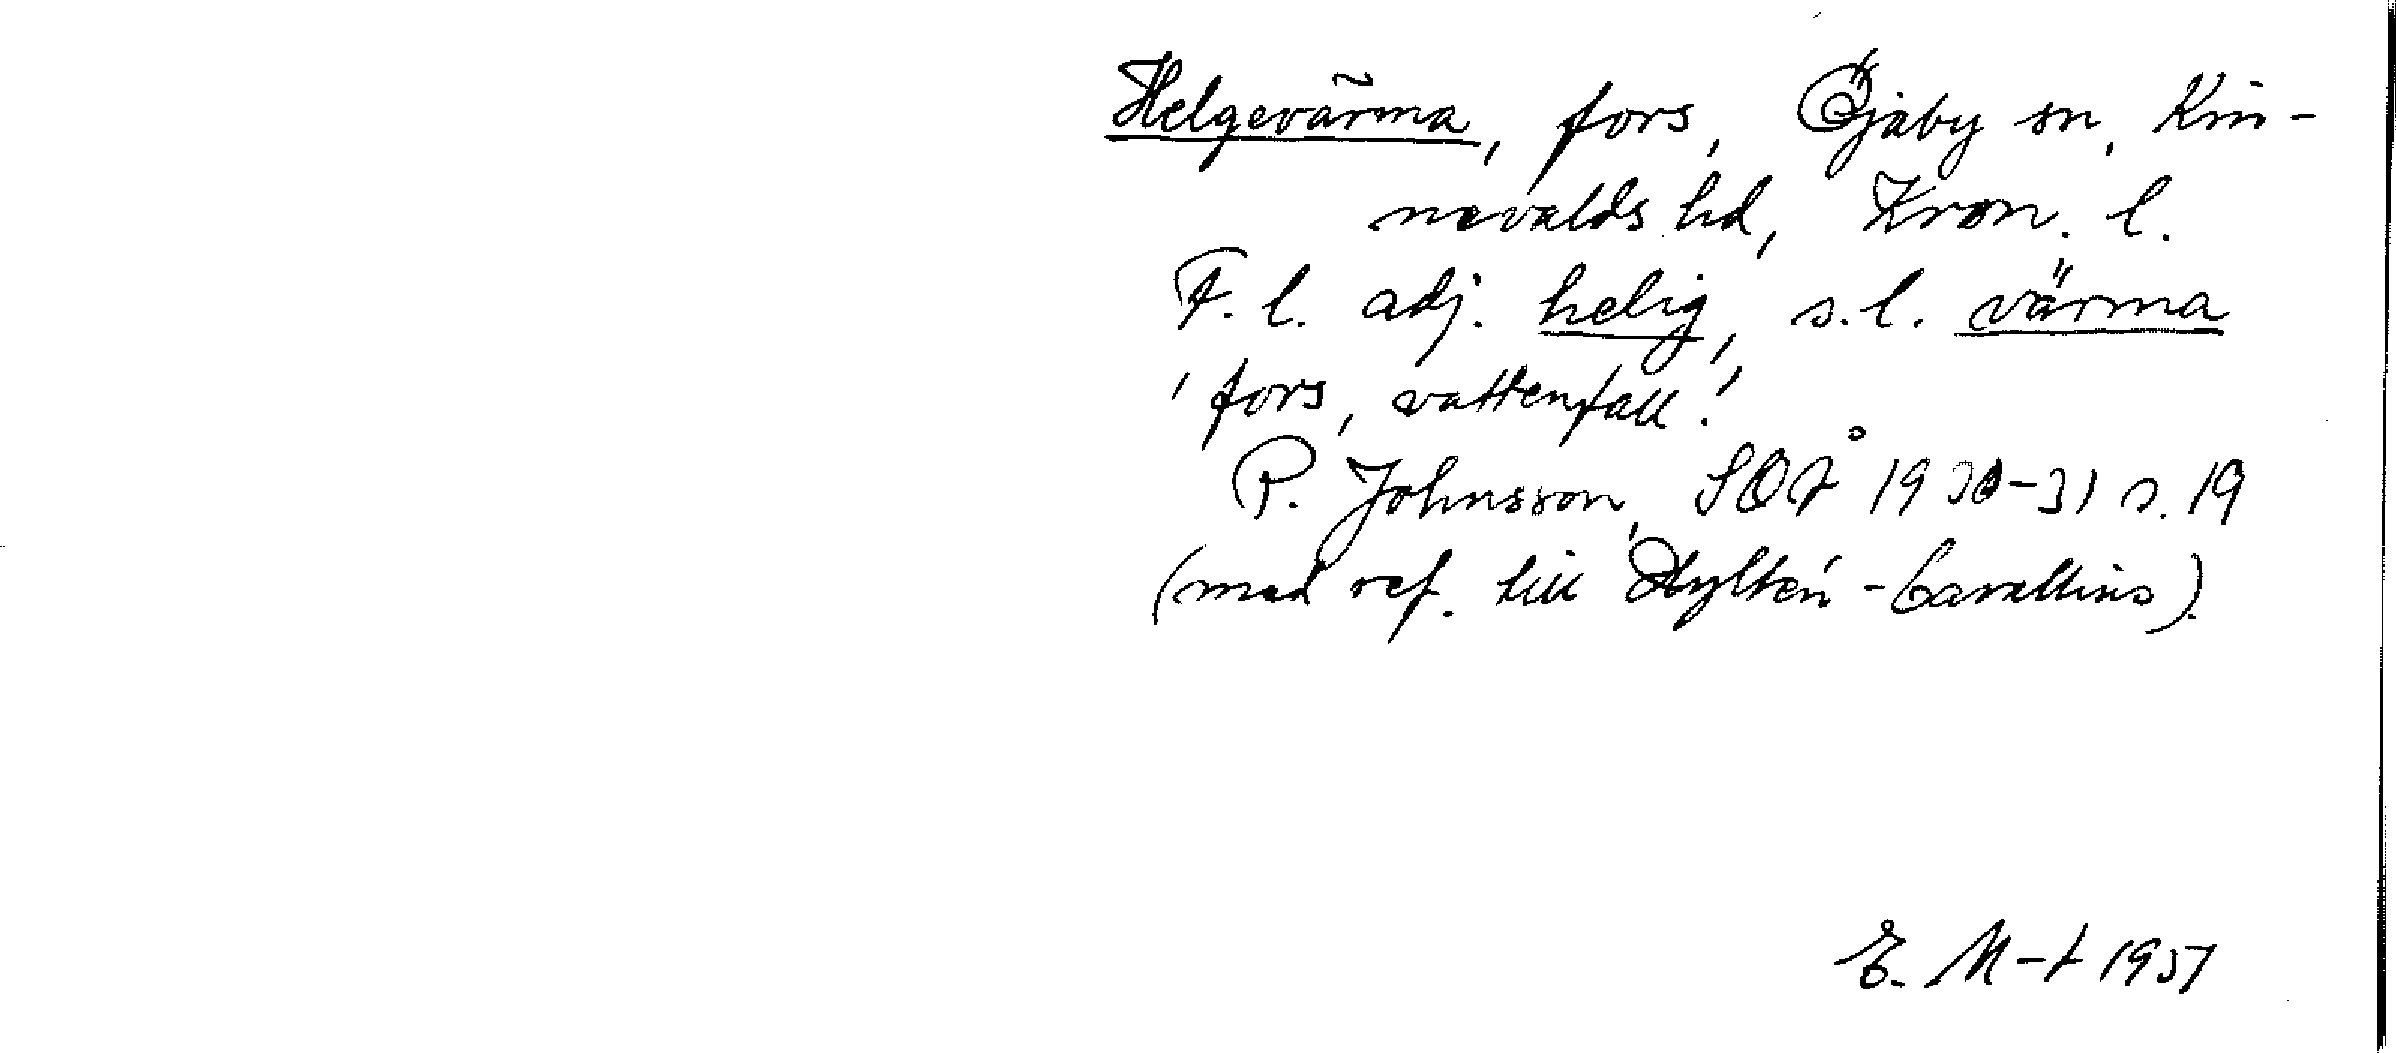 Helgevärma, fors, Öjaby sn, Kin-
nevalds hd, Kron. l.
F. l. adj. helig, s. l. värma
'fors, vattenfall'.
P. Johnsson, SOÅ 1930-31 s. 19
(med ref. till Hyltén-Cavallius).
E. M-t 1957